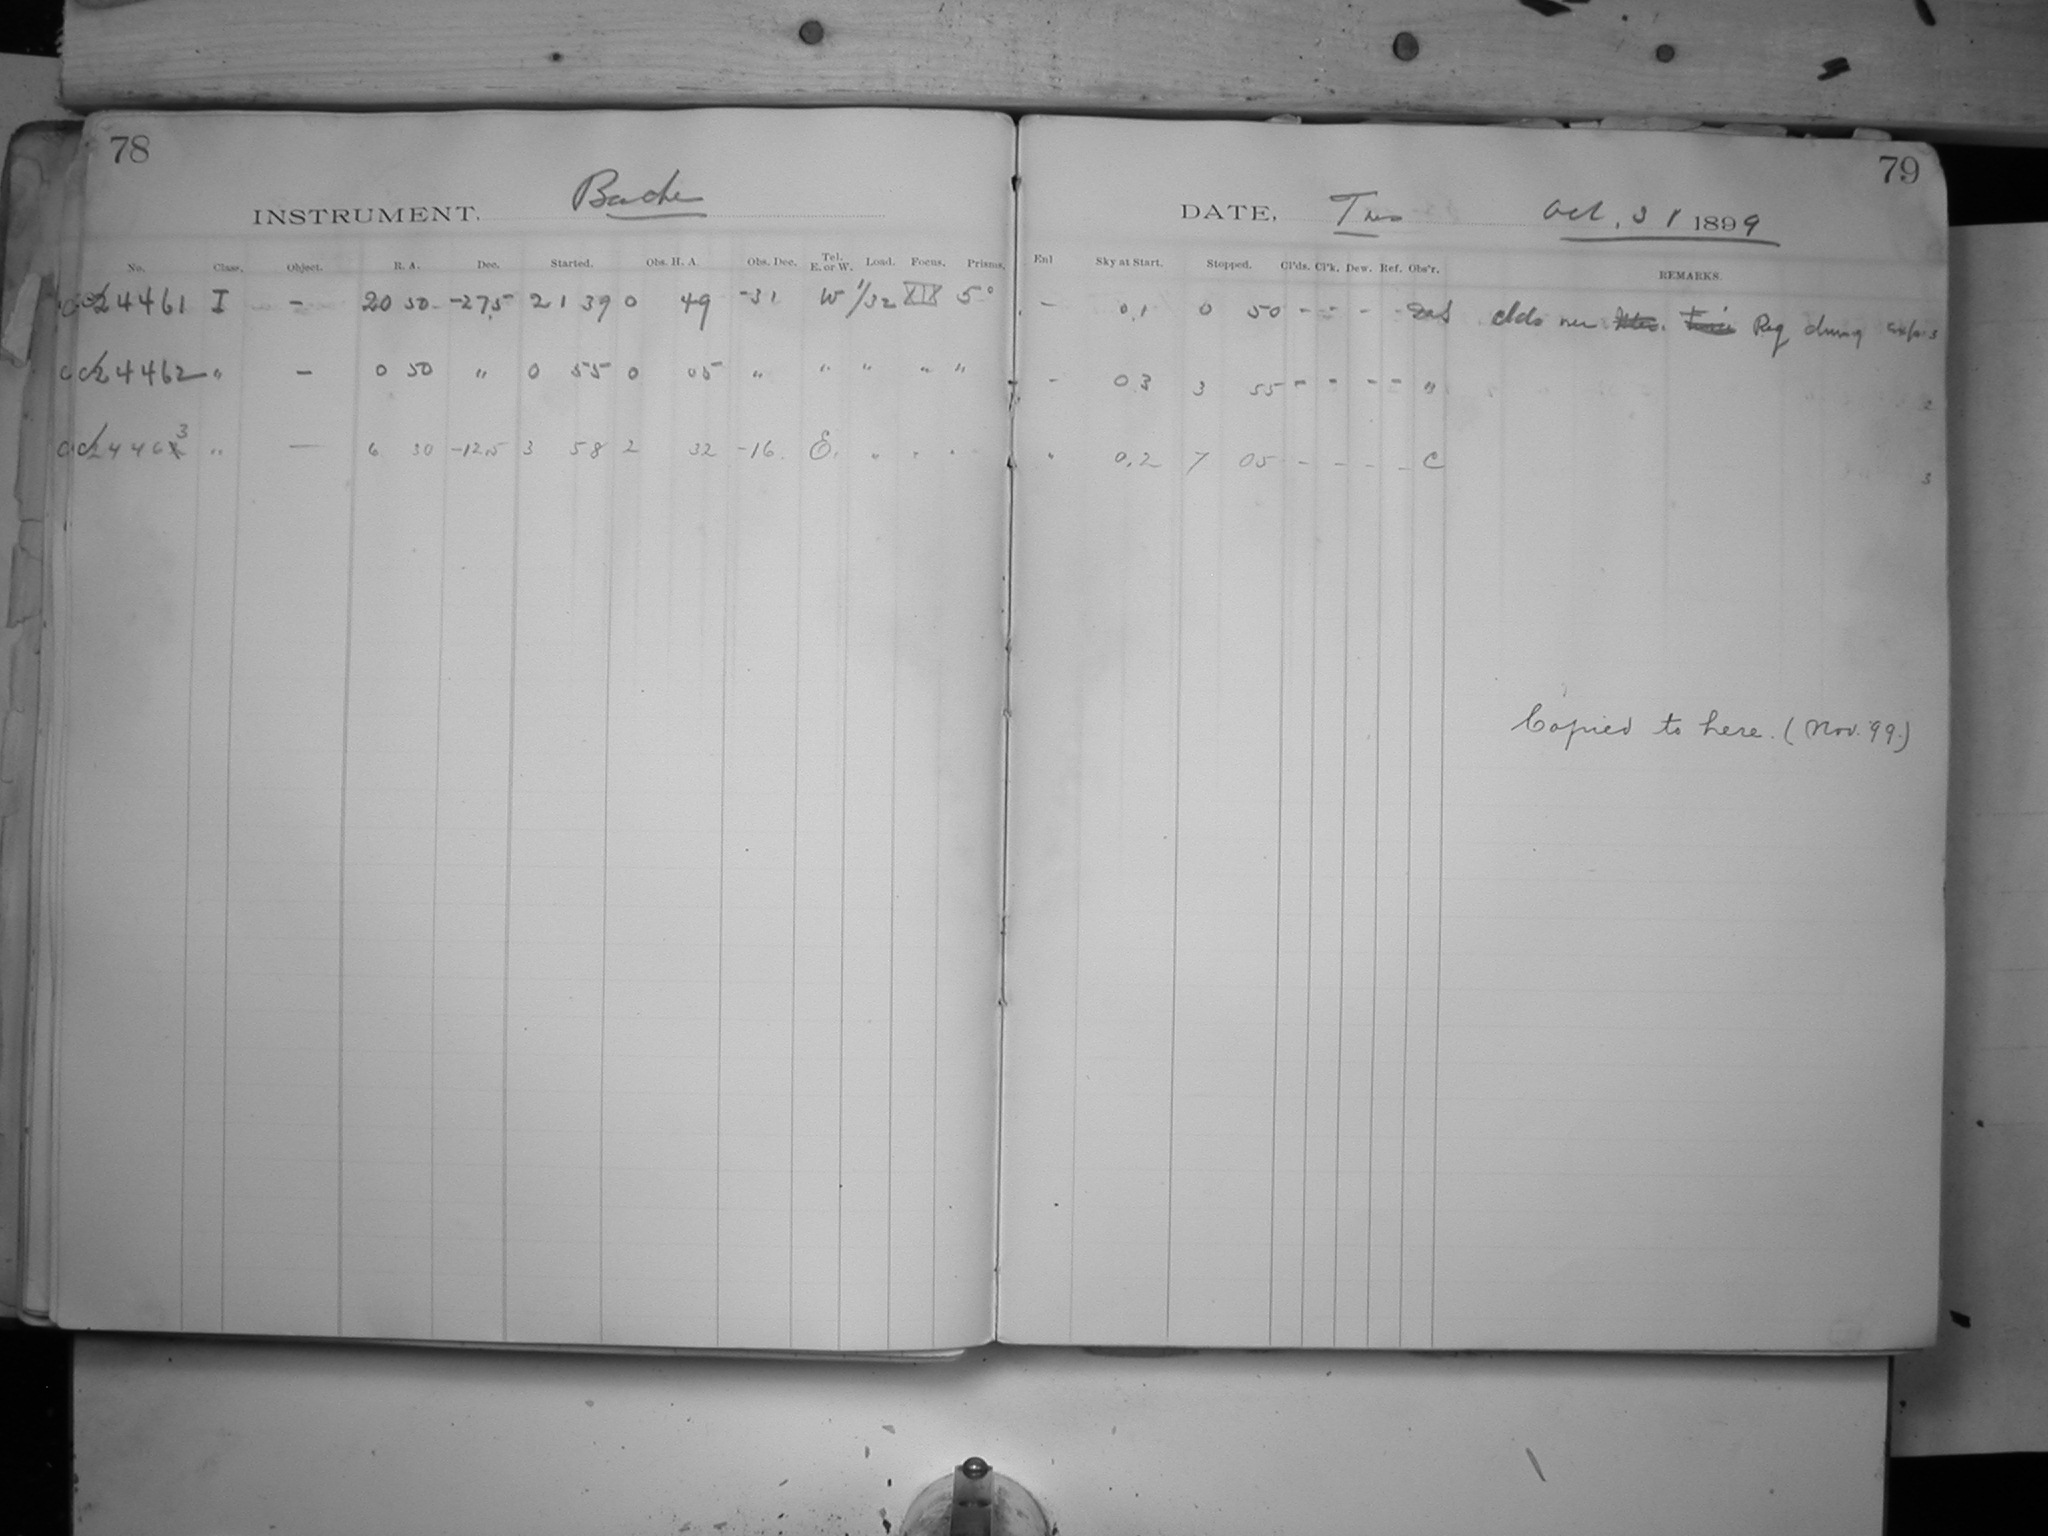 78
INSTRUMENT. Bache
No. Class. Object. R. A. Dec. Started. Obs. H. A. Obs. Dec. Tel. E. or W. Load. Focus. Prisms.
24461 I - 20 50 -27.5 21 39 0 49 -31 W 1/32 XIX 5°
24462 " - 0 50 " 0 55 0 05 " " " " "
24463 " — 6 30 -12.5 3 58 2 32 -16 E. " " "
79
DATE, Tues Oct. 31 1899
Enl Sky at Start. Stopped. Cl'ds. Cl'k. Dew. Ref. Obs'r. REMARKS.
- 0.1 0 50 - - - - clds over Reg during 3
- 0.3 3 55 - - - - " 2
" 0.2 7 05 - - - - C 3
Copied to here. (Nov. 99.)